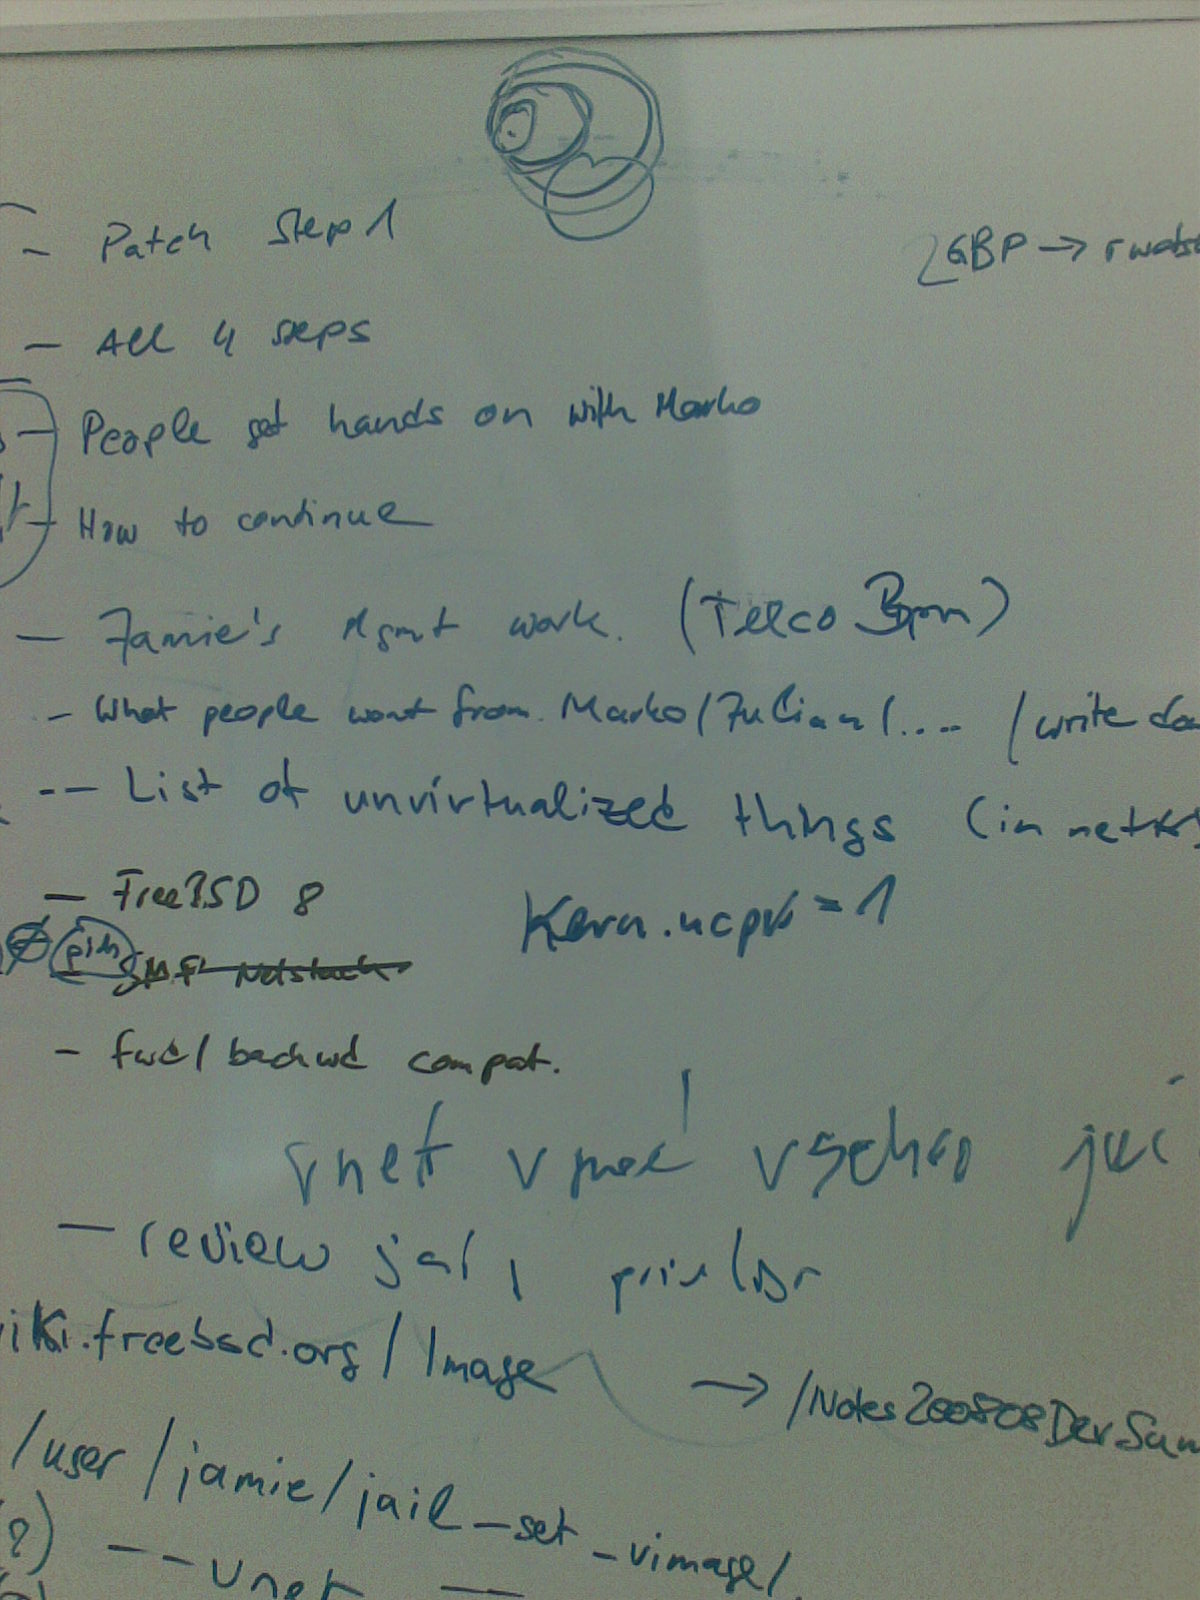 - Patch Step 1
2GBP → rwats
- All 4 steps
- People get hands on with Marko
- How to continue
- Jamie's Mgmt work. (Telco 3pm)
- What people want from Marko/Julian/.... /write do
-- List of unvirtualized things (in net
- FreeBSD 8
Kern.ncpu=1
SMP Netstack
- fwd/backwd compat.
vnet vproc vsched
- review jail, priv
iki.freebsd.org/Image → /Notes200808DevSum
/user/jamie/jail_set_vimage/
?) -- vnet —